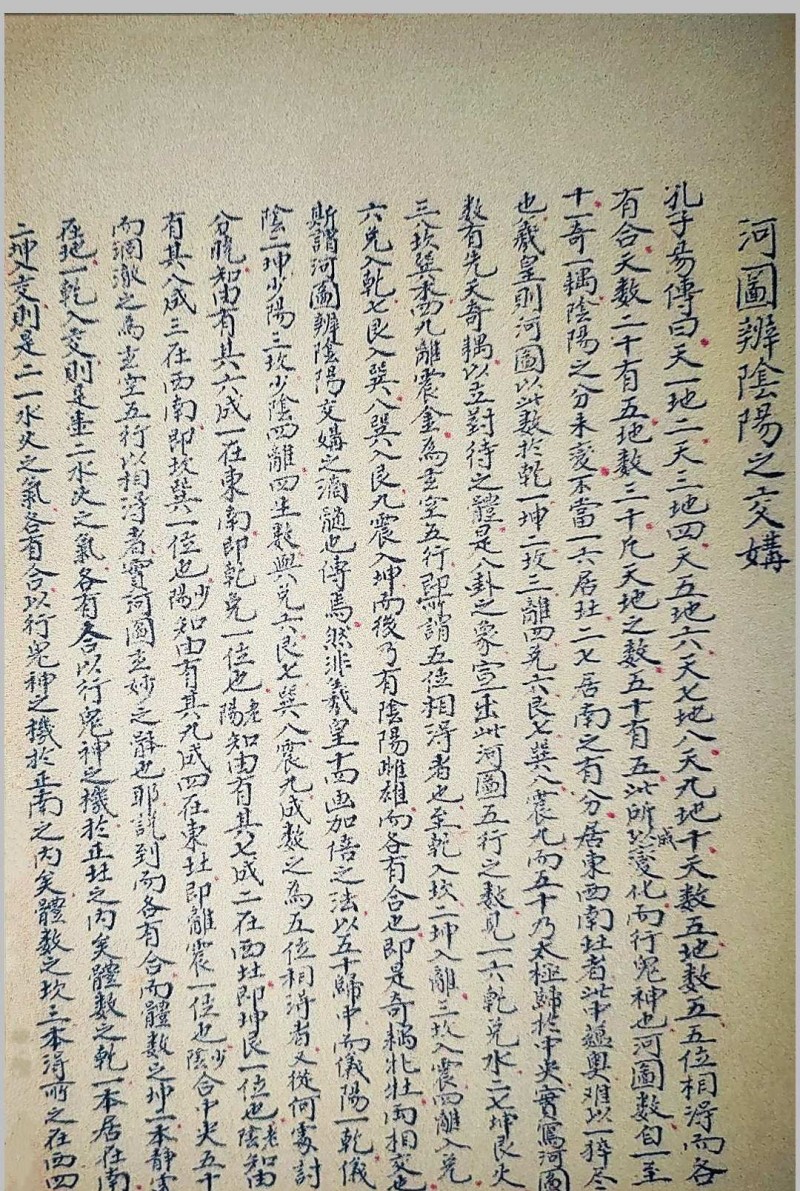 河圖辨陰陽之交媾
孔子易傳曰天一地二天三地四天五地六天七地八天九地十天數五地數五五位相得而各
有合天數二十有五地數三十凡天地之數五十有五此所以成變化而行鬼神也河圖數自一至
十一奇一耦陰陽之分未變不當一六居北二七居南之有分居東西南北者此中蘊奧難以一猝尽
也羲皇則河圖以此數於乾一坤二坎三離四兌六艮七巽八震九而五十乃太極歸於中央實寫河圖
數有先天奇耦以立對待之體是八卦之象宣出此河圖五行之數見一六乾兌水二七坤艮火
三八坎巽木四九離震金為玄空五行即所謂五位相得者也至乾入坎二坤入離三坎入震四離入兌
六兌入乾七艮入巽八巽入艮九震入坤而後乃有陰陽雌雄而各有合也即是奇耦牝牡而相交也
斯謂河圖辨陰陽交媾之滴髓也傳焉然非羲皇十四画加倍之法以五十歸中而儀陽一乾儀
陰二坤少陽三坎少陰四離四生數與兌六艮七巽八震九成數之為五位相得者又從何處討
分曉知由有其六成一在東南即乾兌一位也老陽知由有其七成二在西北即坤艮一位也老陰知由
有其八成三在西南即坎巽一位也少陽知由有其九成四在東北即離震一位也少陰合中央五十
而洞澈之為玄空五行以相得者實河圖玄妙之辭也耶說到而各有合而體數之坤一本靜
在地一乾入交則是壹二水火之氣各有合以行鬼神之機於正北之內矣體數之乾一本居在南
二坤入交則是二一水火之氣各有合以行鬼神之機於正南之內矣體數之坎三本得所之在西四